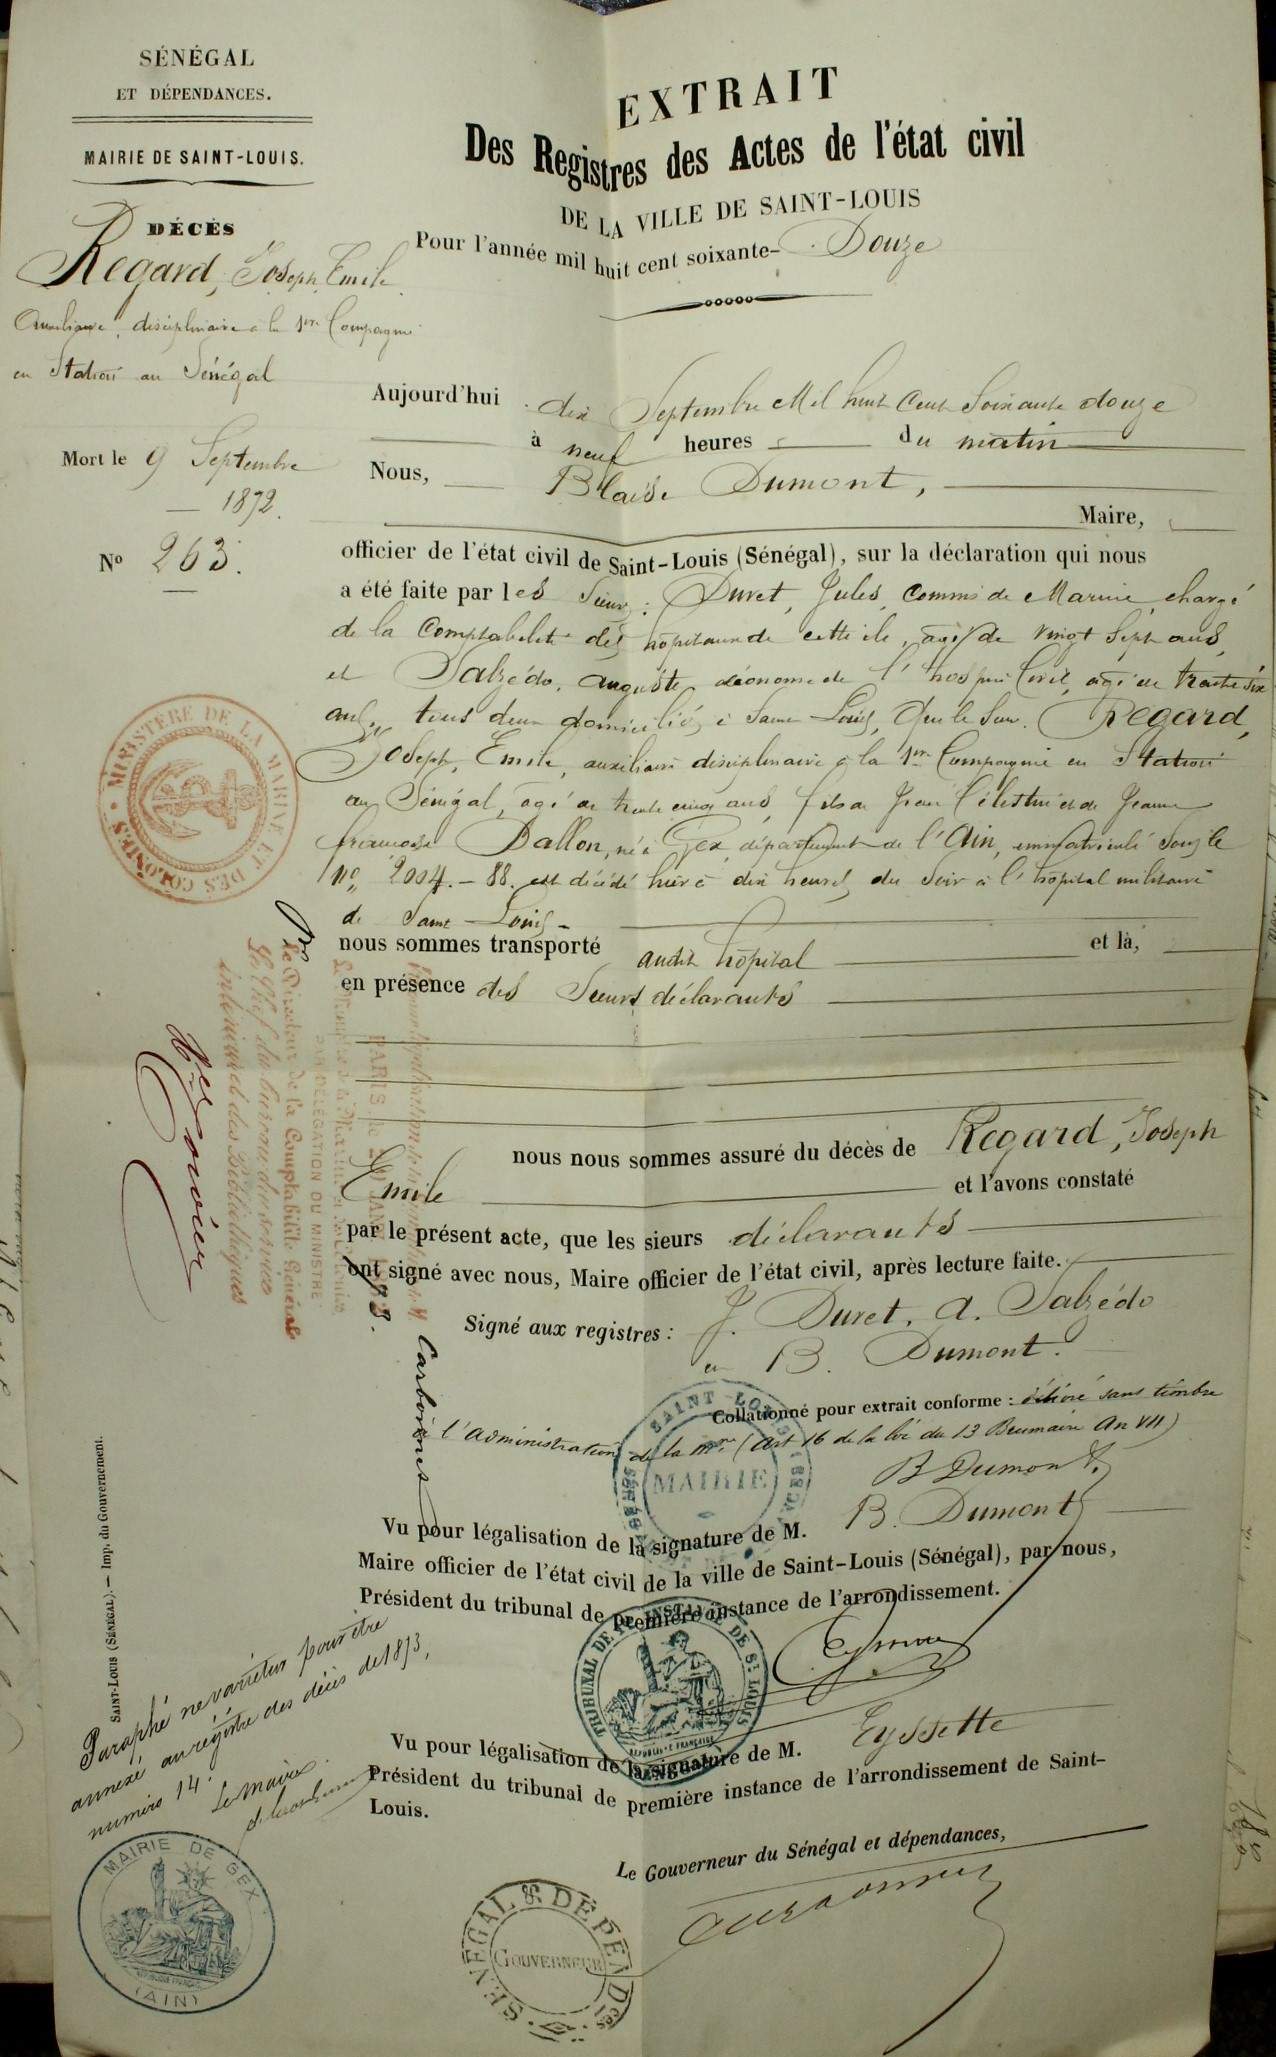 SÉNÉGAL
ET DÉPENDANCES.
MAIRIE DE SAINT-LOUIS.
DÉCÈS
Regard, Joseph Emile
auxiliaire disciplinaire à la 1re Compagnie
en Station au Sénégal
Mort le 9 Septembre
1872.
No 263.
EXTRAIT
Des Registres des Actes de l'état civil
DE LA VILLE DE SAINT-LOUIS
Pour l'année mil huit cent soixante- Douze
Aujourd'hui dix Septembre Mil huit Cent Soixante douze
à neuf heures du matin
Nous, Blaise Dumont,
Maire,
officier de l'état civil de Saint-Louis (Sénégal), sur la déclaration qui nous
a été faite par les Sieurs : Duret, Jules, Commis de Marine, chargé
de la Comptabilité des hôpitaux de cette île, âgé de vingt Sept ans,
et Salzédo, auguste, économe de l'hospice Civil, âgé de trente six
ans, tous deux domiciliés à Saint Louis, que le Sieur Regard,
Joseph, Emile, auxiliaire disciplinaire à la 1re Compagnie en Station
au Sénégal, âgé de trente cinq ans, fils de Jean Célestin et de Jeanne
françoise Ballon, né à Gex, département de l'Ain, immatriculé Sous le
No 2004.-88. est décédé hier à dix heures du Soir à l'hôpital militaire
de Saint-Louis-
nous sommes transporté audit hôpital et là,
en présence des Sieurs déclarants
nous nous sommes assuré du décès de Regard, Joseph
Emile et l'avons constaté
par le présent acte, que les sieurs déclarants
ont signé avec nous, Maire officier de l'état civil, après lecture faite.
Signé aux registres : J. Duret, A. Salzédo
et B. Dumont.
Collationné pour extrait conforme : délivré sans timbre
à l'administration de la mne (Art 16 de la loi du 13 Brumaire An VII)
B Dumont
Vu pour légalisation de la signature de M. B. Dumont
Maire officier de l'état civil de la ville de Saint-Louis (Sénégal), par nous,
Président du tribunal de première instance de l'arrondissement.
Vu pour légalisation de la signature de M. Eyssette
Président du tribunal de première instance de l'arrondissement de Saint-
Louis.
Le Gouverneur du Sénégal et dépendances,
MINISTÈRE DE LA MARINE ET DES COLONIES
PARIS, le
PAR DÉLÉGATION DU MINISTRE
Le Directeur de la Comptabilité Générale
Le Chef du bureau du service
intérieur et des Bibliothèques
SAINT LOUIS
MAIRIE
TRIBUNAL DE 1re INSTANCE DE St LOUIS
RÉPUBLIQUE FRANÇAISE
SÉNÉGAL & DÉPENDces
GOUVERNEUR
SAINT-LOUIS (SÉNÉGAL).— Imp. du Gouvernement.
Paraphé ne varietur pour être
annexé au régistre des décès de 1873,
numéro 14.
Le maire
MAIRIE DE GEX
RÉPUBLIQUE FRANÇAISE
(AIN)